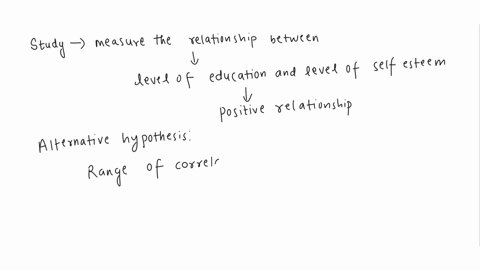 Study → measure the relationship between
↓
level of education and level of self esteem
↓
positive relationship
Alternative hypothesis:
Range of correl